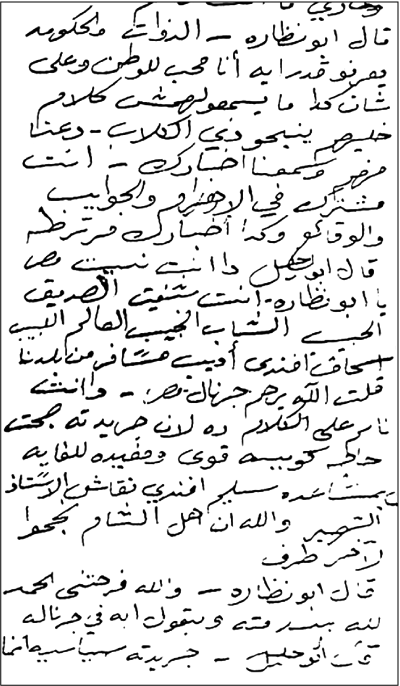 قال ابو نظاره — الذوات والحكومه
يعرفو قدر ايه أنا محب للوطن وعلى
شان كدا ما يسمعولهمش كلام
خليهم ينبحو ذي الكلاب - دعنا
منهم وسمعنا اخبارك — انت
مشترك في الاهرام والجوايب
والوقائع وكدا أخبارك مرتزطه
قال ابو خليل دا انت نسيت مصر
يا ابو نظاره - انت شفت الصديق
الحبيب الشاب النجيب العالم اللبيب
اسحاق افندى أديب مسافر من بلدنا
قلت الله يرحم جرنال مصر — وانت
نايم على الكلام ده لان جريدته صحت
حاجه كويسه قوى ومفيده للغايه
بمساعده سليم افندي نقاش الاستاذ
الشهير والله ان اهل الشام نجحوا
لآخر طرف
قال ابو نظاره — والله فرحتنى الحمد
لله بندمته وبيقول ايه في جرناله
قال أبو خليل — جريدته سياسيه انما